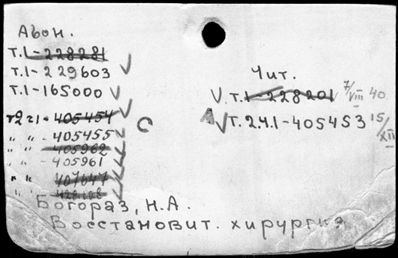 Абон.
т.1-228281
т.1-229603 V
т.1-165000 V
т.2ч.1-405454 V
" " -405455 V
" " 405962 V
" " 405961 V
" " 407647 V
" "
Чит.
V т.1-228201 7/VIII 40
V т.2.ч.1-405453 15/XII
Богораз, Н.А.
Восстановит. хирургия